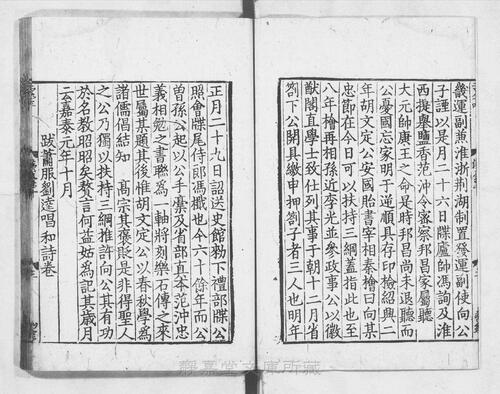 幾運副蕪淮浙荆湖制置發運副使向公
子諲以是月二十六日牒廬帥馮詢及淮
西提舉鹽香范沖令宻察邦昌家屬聽
大元帥康王之命是時邦昌尚未退聽而
公憂國忘家明于逆順具存印檢紹興二
年胡文定公安國胎書宰相秦檜曰向某
忠節在今日可以扶持三綱蓋指此也至
八年檜再相孫近李光並參政事公以徽
猷閣直學士致仕列其事于朝十二月省
劄下公開具繳申押劄子者三人也明年
正月二十九日詔送史館勑下禮部牒公
照會牒尾侍郎馮檝也今六十餘年而公
曾孫公起以公手槀及省部真本范沖忠
義相勉之書聮為一軸將刻樂石傳之來
世屬某題其後惟胡文定公以春秋學為
諸儒倡結知 髙宗其襃貶是非得聖人
之公乃獨以扶持三綱推許向公其有功
於名教昭昭矣螯言何益姑為記其歲月
云嘉泰元年十月
跋蕭服劉逵唱和詩卷
靜嘉堂文庫所藏